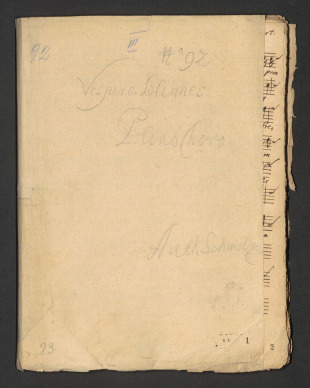 92
III
N° 92
Vespera Solennes
Pleno Choro
23
1
2